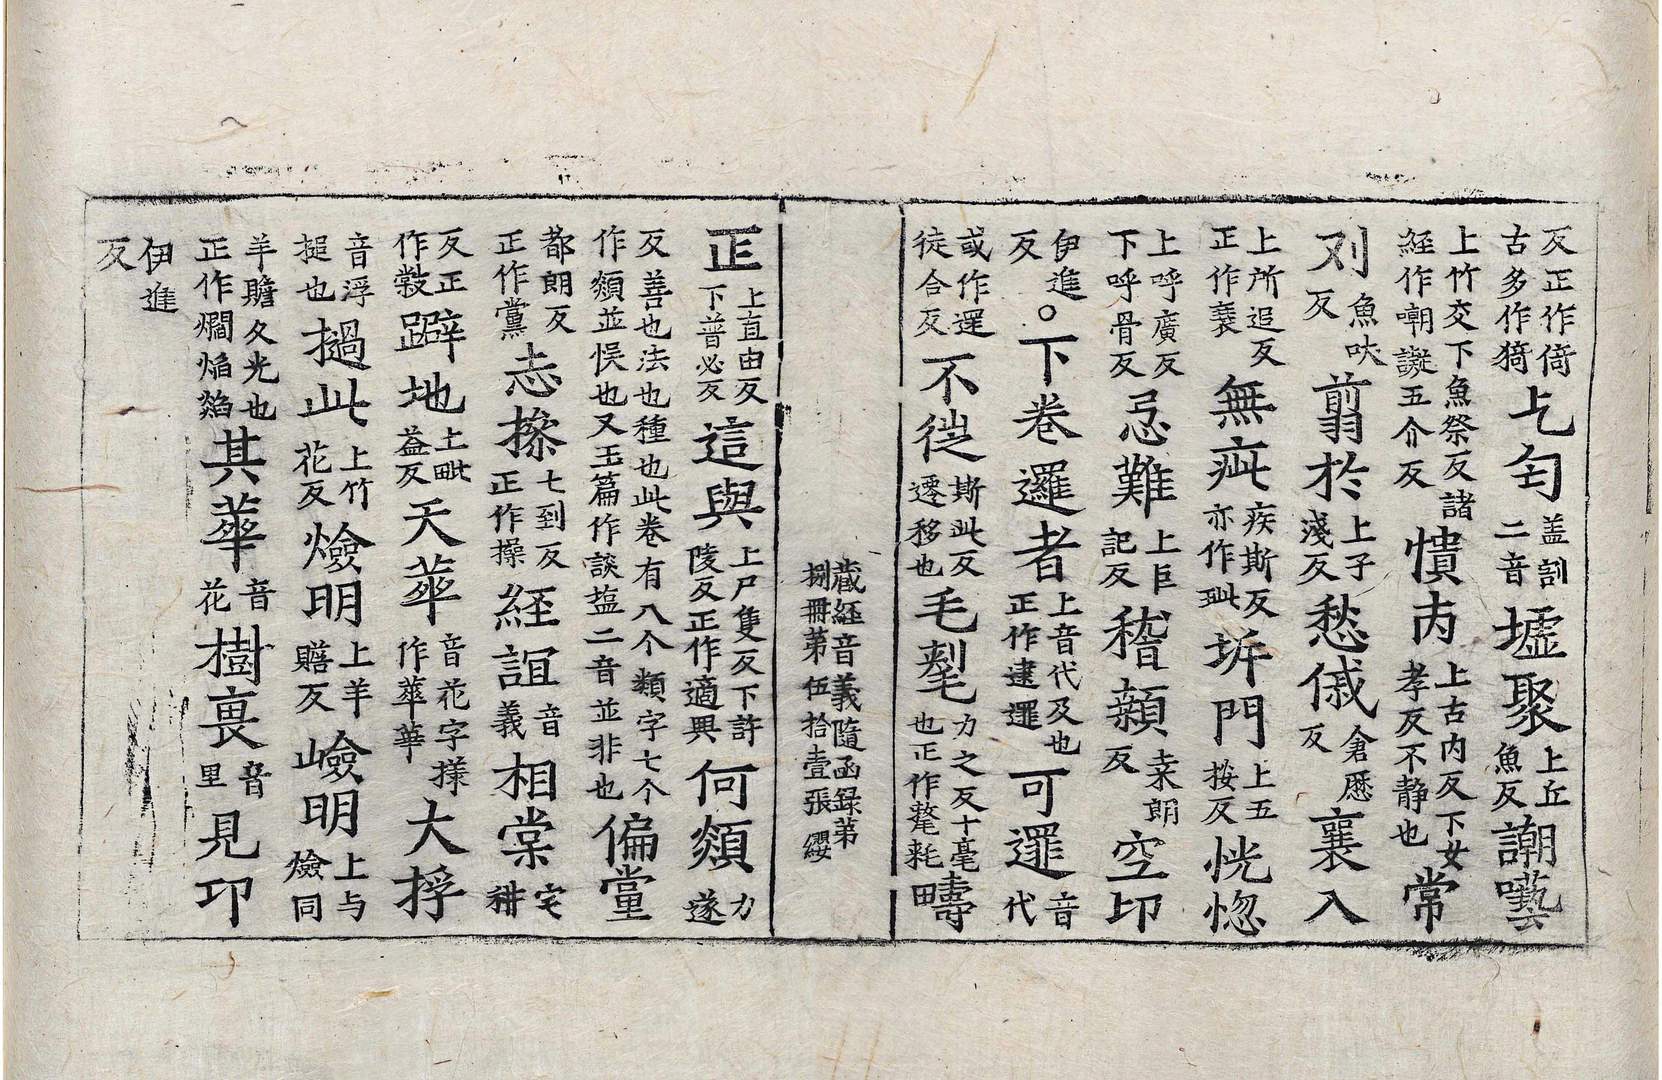 反正作倚古多作猗乞匄盖訓二音墟聚上丘魚反謿囈
上竹交下魚祭反諸経作嘲讛五介反憒丙上古内反下女孝反不静也常
刈魚吠反翦於上子淺反愁慼倉歷反裹入
上所追反正作蓑無疵疾斯反亦作玼坼門上五按反恍惚
上呼廣反下呼骨反忌難上巨記反稽顙上桒朗反空印
伊進反○下卷邏者上音代及也正作逮邏可邏音代
或作遝徒合反不徙斯此反遷移也毛氂力之反十毫也正作氂耗疇
藏経音義隨函録第
捌冊第伍拾壹張 纓
正上直由反下普必反這與上尸隻反下許陵反正作適興何類力遂
反善也法也種也此卷有八个類字七个作纇並悮也又玉篇作談塩二音並非也偏黨
都朗反正作黨志操七到反正作操経誼音義相棠宅耕
反正作㲉躃地上毗益反天華音花字㨾作蕐華大捊
音浮搥也撾此上竹花反爓明上羊贍反嶮明上与爓同
羊贍反光也正作爓焔焰其華音花樹裏音里見印
伊進反